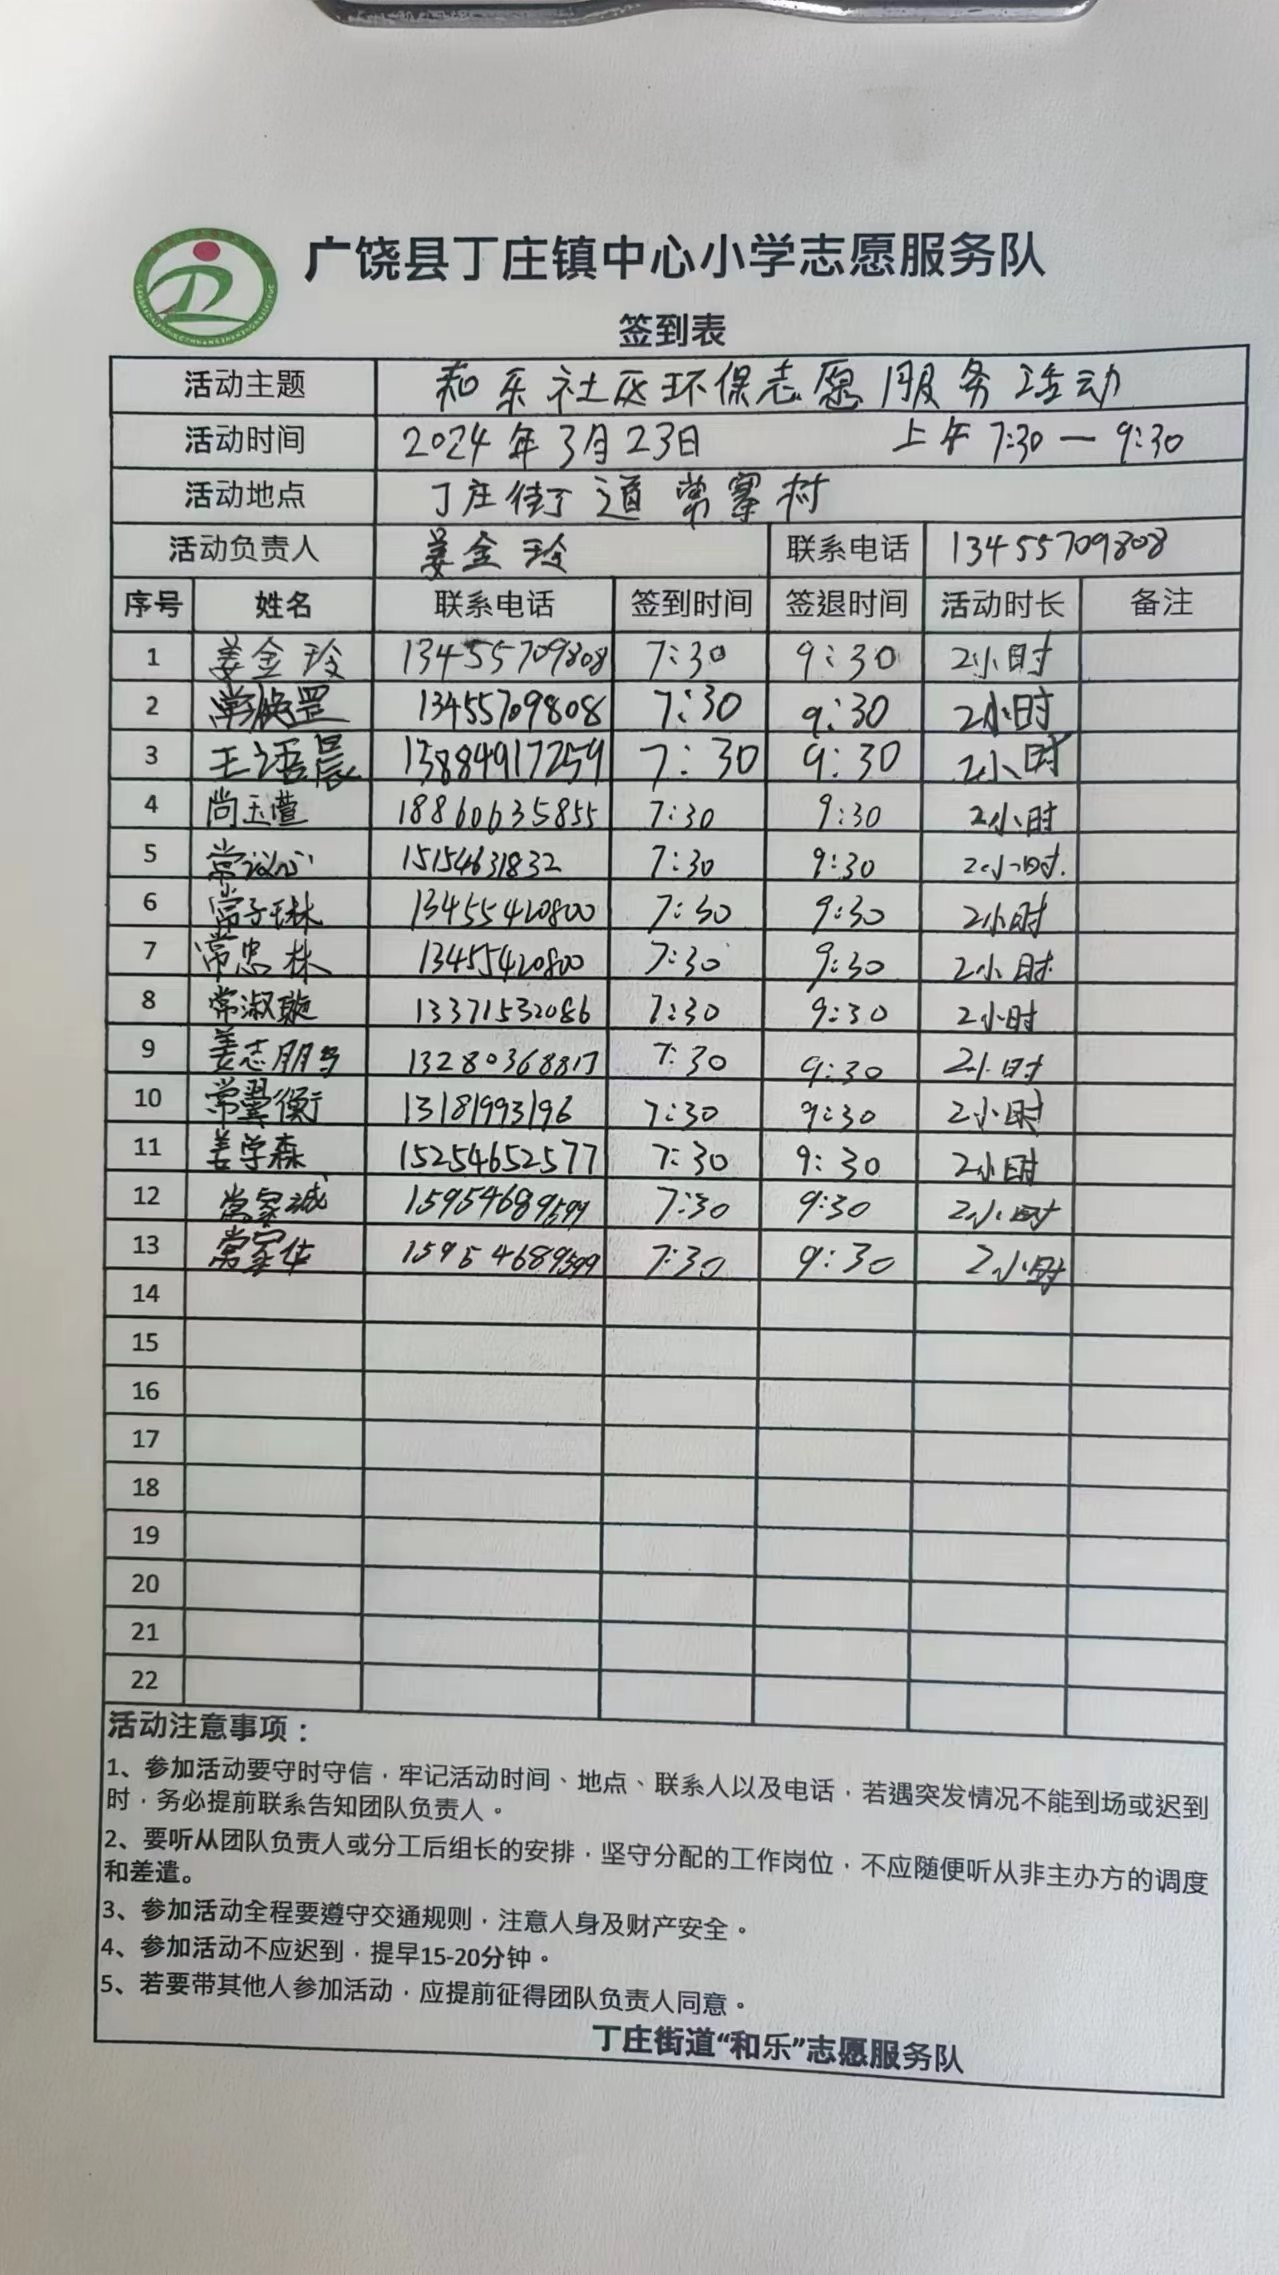 广饶县丁庄镇中心小学志愿服务队
签到表
活动主题 和乐社区环保志愿服务活动
活动时间 2024年3月23日 上午7:30—9:30
活动地点 丁庄街道常寨村
活动负责人 姜金玲 联系电话 13455709808
序号 姓名 联系电话 签到时间 签退时间 活动时长 备注
1 姜金玲 13455709808 7:30 9:30 2小时
2 13455709808 7:30 9:30 2小时
3 王语晨 13884917259 7:30 9:30 2小时
4 尚玉萱 18860635855 7:30 9:30 2小时
5 常议心 15154631832 7:30 9:30 2小时.
6 常子琳 13455420800 7:30 9:30 2小时
7 常忠林 13455420800 7:30 9:30 2小时
8 常淑璇 13371532086 7:30 9:30 2小时
9 姜志朋 13280368817 7:30 9:30 2小时
10 常翼衡 13181993196 7:30 9:30 2小时
11 姜学森 15254652577 7:30 9:30 2小时
12 常家诚 15954689599 7:30 9:30 2小时
13 常家华 15954689599 7:30 9:30 2小时
14
15
16
17
18
19
20
21
22
活动注意事项：
1、参加活动要守时守信，牢记活动时间、地点、联系人以及电话，若遇突发情况不能到场或迟到
时，务必提前联系告知团队负责人。
2、要听从团队负责人或分工后组长的安排，坚守分配的工作岗位，不应随便听从非主办方的调度
和差遣。
3、参加活动全程要遵守交通规则，注意人身及财产安全。
4、参加活动不应迟到，提早15-20分钟。
5、若要带其他人参加活动，应提前征得团队负责人同意。
丁庄街道“和乐”志愿服务队